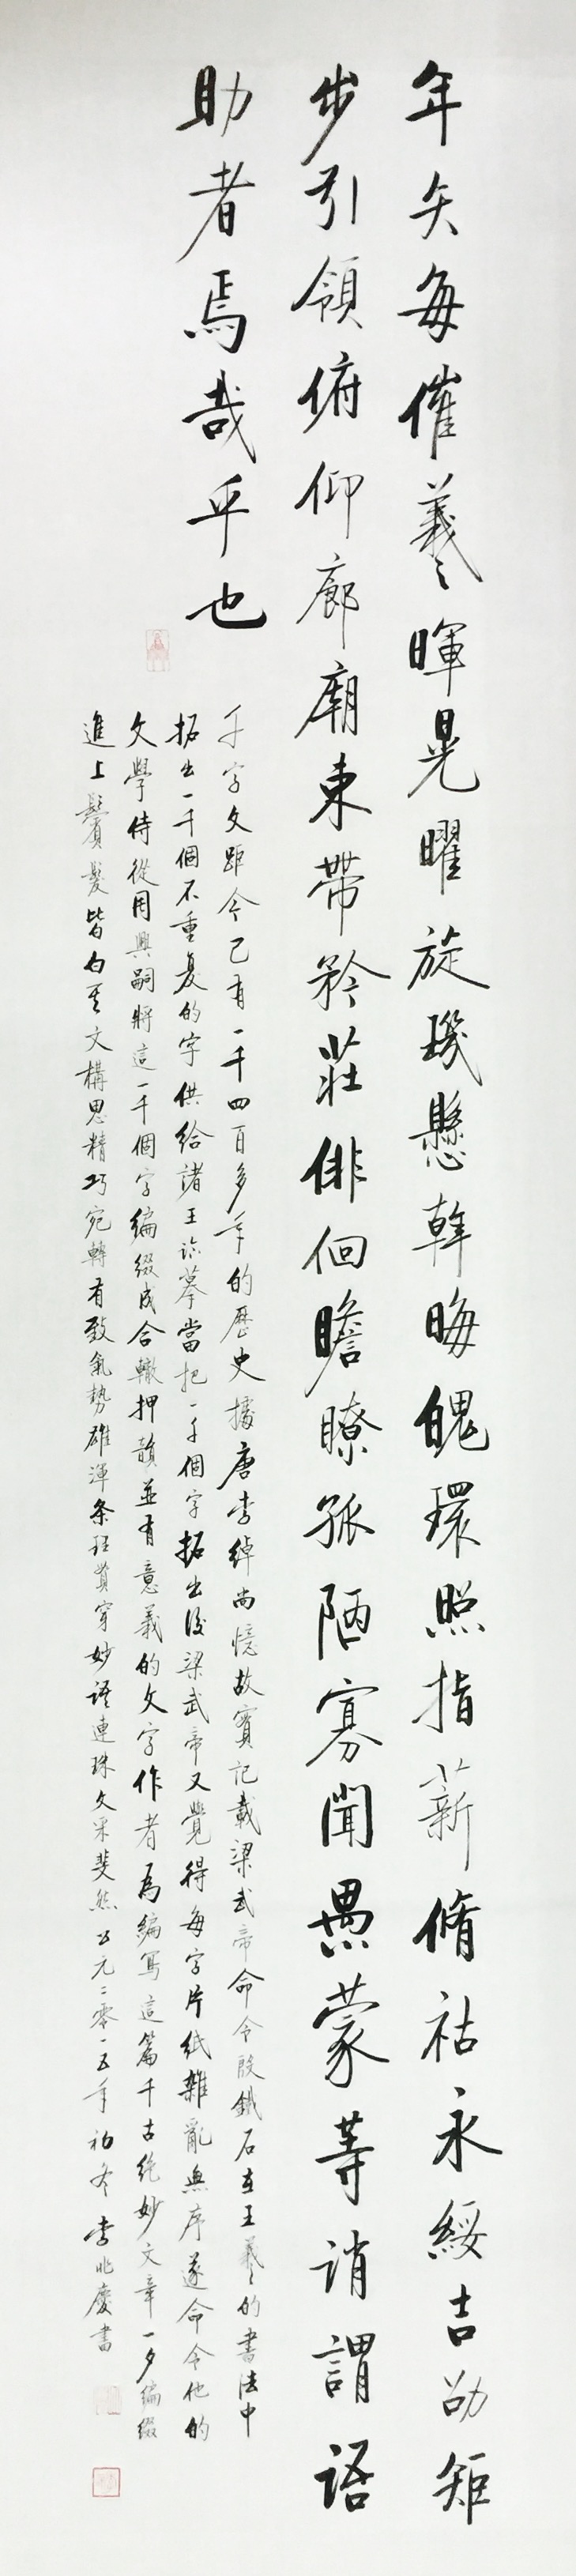 年矢每催羲暉晃曜旋璣懸斡晦魄環照指薪脩祜永綏吉劭矩
步引領俯仰廊廟束帶矜莊俳佪瞻瞭孤陋寡聞愚蒙等誚謂語
助者焉哉乎也
千字文距今已有一千四百多年的歷史據唐李綽尚憶故實記載梁武帝命令殷鐵石在王羲之的書法中
拓出一千個不重复的字供給諸王臨摹當把一千個字拓出後梁武帝又覺得每字片紙雜亂無序遂命令他的
文學侍從周興嗣將這一千個字編綴成合轍押韻並有意義的文字作者為編寫這篇千古绝妙文章一夕編綴
進上鬢髮皆白其文構思精巧宛轉有致氣勢雄渾条理貫穿妙語連珠文采斐然公元二零一五年初冬李兆慶書